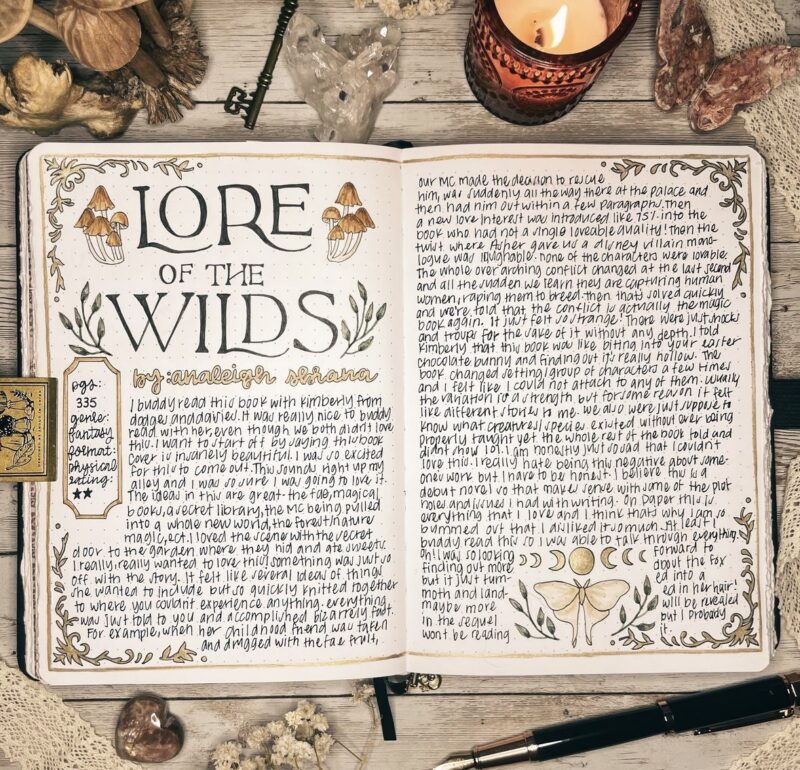 LORE
OF THE
WILDS
by: analeigh sbrana
pgs:
335
genre:
fantasy
format:
physical
rating:
★★
I buddy read this book with kimberly from
dodges anddairies. It was really nice to buddy
read with her, even though we both didnt love
this. I want to start off by saying this book
cover is insanely beautiful. I was so excited
for this to come out. This sounds right up my
alley and I was so sure I was going to love it.
The ideas in this are great. the fae, magical
books, a secret library, the MC being pulled
into a whole new world, the forest/nature
magic, ect. I loved the scene with the secret
door to the garden where they hid and ate sweets.
I really, really wanted to love this, something was just so
off with the story. It felt like several ideas of things
she wanted to include but so quickly knitted together
to where you couldnt experience anything. everything
was just told to you and accomplished bizarrely fast.
For example, when her childhood friend was taken
and drugged with the fae fruit,
our MC made the decision to rescue
him, was suddenly all the way there at the palace and
then had him out within a few paragraphs. Then
a new love interest was introduced like 75% into the
book who had not a single loveable quality! Then the
twist where Asher gave us a disney villain mono-
logue was laughable. None of the characters were lovable.
The whole over arching conflict changed at the last second
and all the sudden we learn they are capturing human
women, raping them to breed. then thats solved quickly
and we're told that the conflict is actually the magic
book again. It just felt so strange! There were just shocks
and troups for the save of it without any depth. I told
kimberly that this book was like biting into your easter
chocolate bunny and finding out it's really hollow. The
book changed setting/group of characters a few times
and I felt like I could not attach to any of them. usually
the variation is a strength but for some reason it felt
like different stories to me. We also were just suppose to
know what creatures/species existed without ever being
properly taught yet the whole rest of the book told and
didnt show lol. I am honestly just so sad that I couldn't
love this. I really hate being this negative about some-
ones work but I have to be honest. I believe this is a
debut novel so that makes sense with some of the plot
holes and issues I had with writing. On paper this is
everything that I love and I think thats why I am so
bummed out that I disliked it so much. At least I
buddy read this so I was able to talk through everything.
oh! I was so looking forward to
finding out more about the fox
but it just turn- ed into a
moth and land- ed in her hair!
maybe more will be revealed
in the sequel but I probably
wont be reading it.